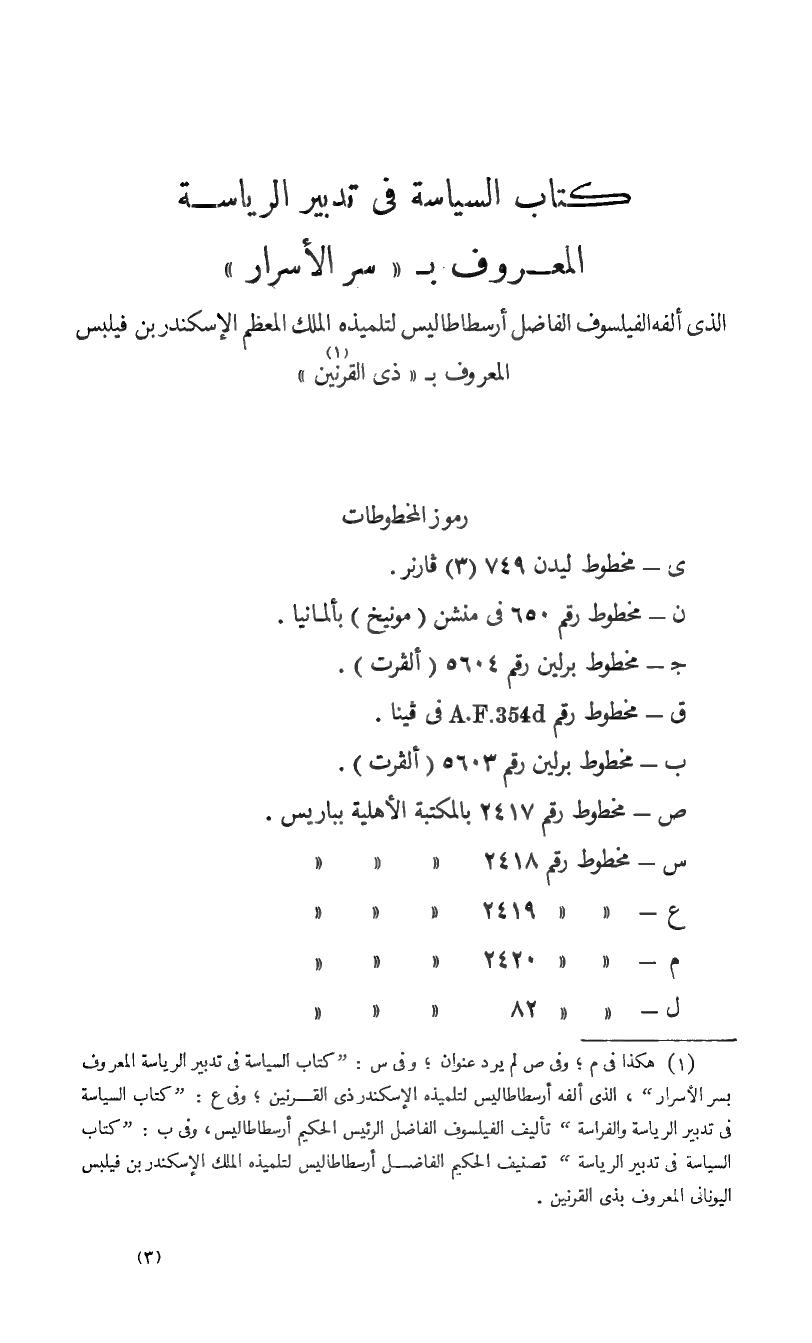 كتاب السياسة فى تدبير الرياسة
المعروف بـ « سر الأسرار »
الذى ألفه الفيلسوف الفاضل أرسطاطاليس لتلميذه الملك المعظم الإسكندر بن فيلبس
المعروف بـ « ذى القرنين »(١)
رموز المخطوطات
ى — مخطوط ليدن ٧٤٩ (٣) ڤارنر .
ن — مخطوط رقم ٦٥٠ فى منشن ( مونيخ ) بألمانيا .
جـ — مخطوط برلين رقم ٥٦٠٤ ( ألڤرت ) .
ق — مخطوط رقم A.F.354d فى ڤينا .
ب — مخطوط برلين رقم ٥٦٠٣ ( ألڤرت ) .
ص — مخطوط رقم ٢٤١٧ بالمكتبة الأهلية بباريس .
س — مخطوط رقم ٢٤١٨ » » »
ع — » » ٢٤١٩ » » »
م — » » ٢٤٢٠ » » »
ل — » » ٨٢ » » »
(١) هكذا فى م ؛ وفى ص لم يرد عنوان ؛ وفى س : ”كتاب السياسة فى تدبير الرياسة المعروف
بسر الأسرار“ ، الذى ألفه أرسطاطاليس لتلميذه الإسكندر ذى القرنين ؛ وفى ع : ”كتاب السياسة
فى تدبير الرياسة والفراسة“ تأليف الفيلسوف الفاضل الرئيس الحكيم أرسطاطاليس ، وفى ب : ”كتاب
السياسة فى تدبير الرياسة“ تصنيف الحكيم الفاضل أرسطاطاليس لتلميذه الملك الإسكندر بن فيلبس
اليونانى المعروف بذى القرنين .
(٣)